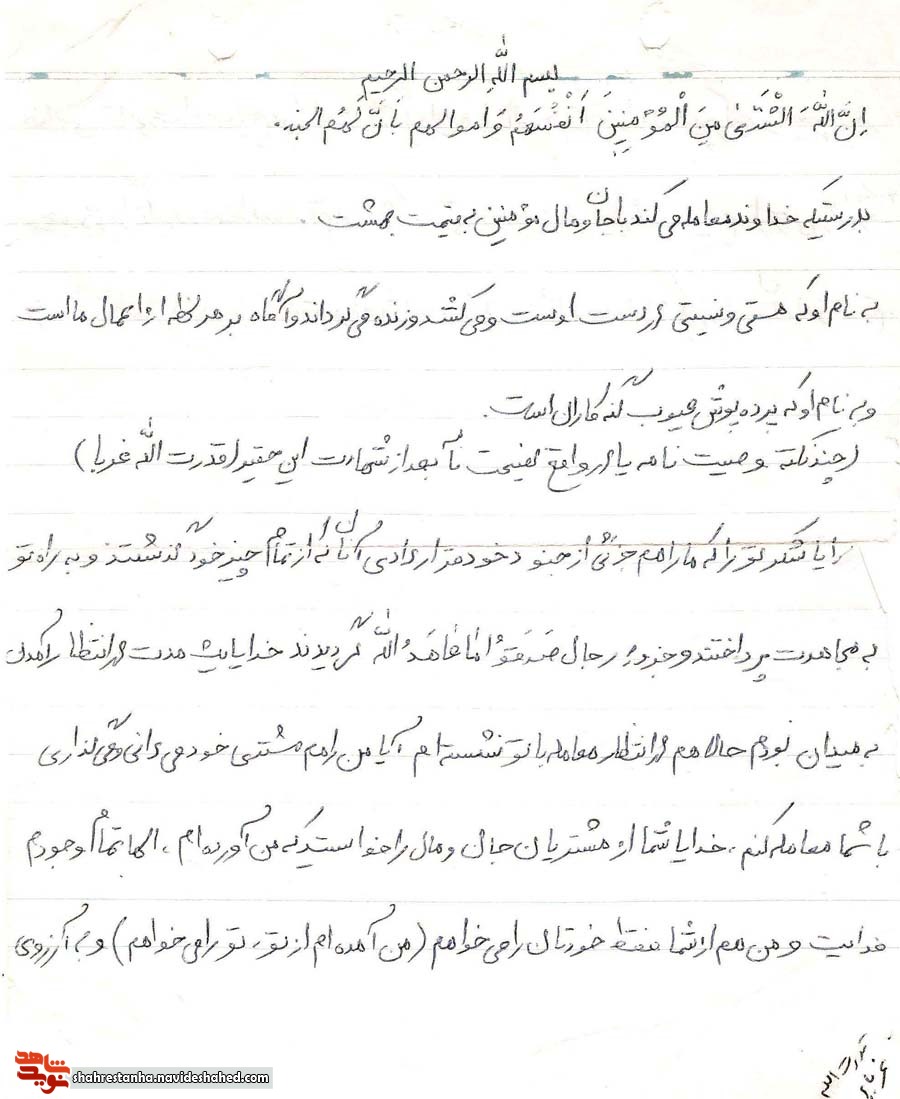 بسم اللّه الرحمن الرحیم
اِنَّ اللّهَ اشْتَریٰ مِنَ الْمُؤْمِنینَ اَنْفُسَهُمْ وَاموالهم بِاَنَّ لَهُمُ الجنه.
بدرستیکه خداوند معامله می کند با جان و مال مؤمنین به قیمت بهشت.
به نام او که هستی و نیستی در دست اوست و می کشد و زنده می گرداند و آگاه بر هر لحظه از اعمال ما است
و به نام او که پرده پوش عیوب گنه کاران است.
(چند نکته وصیت نامه یا در واقع نصیحت نامه بعد از شهادت این حقیر (قدرت اللّه غربا)
خدایا شکر تو را که ما را هم جزئی از جنود خود قرار دادی آنان که از تمام چیز خود گذشتند و به راه تو
به مجاهدت پرداختند و جزء رجال صَدَقوُا ما عٰاهَدُ اللّه گردیدند خدایا یک مدت در انتظار آمدن
به میدان بودم حالا هم در انتظار معامله با تو نشسته ام آیا من را هم مشتری خود می دانی و می گذاری
با شما معامله کنم، خدایا شما از مشتریان جان و مال را خواستید که من آورده ام، الها تمام وجودم
فدایت و من هم از شما فقط خودتان را می خواهم (من آمده ام از تو، تو را می خواهم) و به آرزوی
قدرت الله
غربا
شاهد
نوید
shahrestanha.navideshahed.com